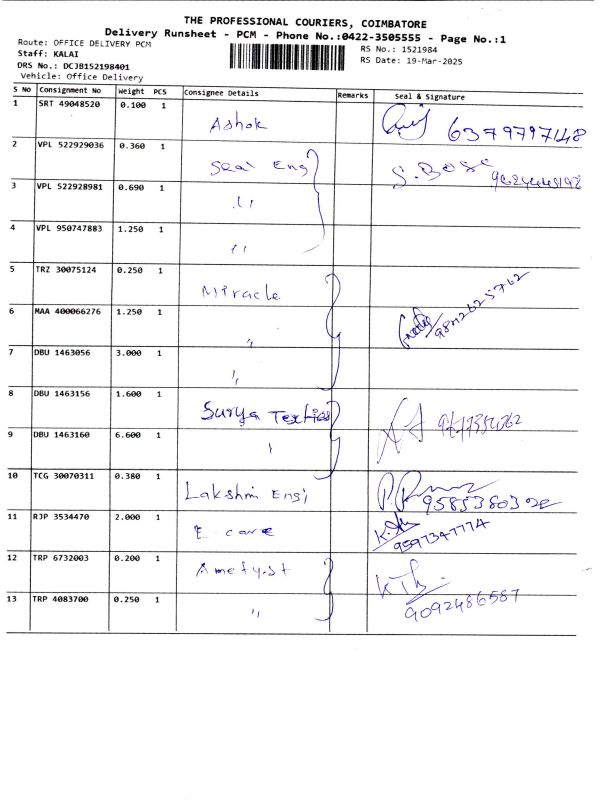 THE PROFESSIONAL COURIERS, COIMBATORE
Delivery Runsheet - PCM - Phone No.:0422-3505555 - Page No.:1
Route: OFFICE DELIVERY PCM
RS No.: 1521984
Staff: KALAI
RS Date: 19-Mar-2025
DRS No.: DCJB152198401
Vehicle: Office Delivery
S No Consignment No Weight PCS Consignee Details Remarks Seal & Signature
1 SRT 49048520 0.100 1 Ashok 6379797148
2 VPL 522929036 0.360 1 Seal Eng S. Bose
3 VPL 522928981 0.690 1 ,,
4 VPL 950747883 1.250 1 ,,
5 TRZ 30075124 0.250 1 Miracle
6 MAA 400066276 1.250 1 ,, 9842625762
7 DBU 1463056 3.000 1 ,,
8 DBU 1463156 1.600 1 Surya Textiles
9 DBU 1463160 6.600 1
10 TCG 30070311 0.380 1 Lakshmi Engi
11 RJP 3534470 2.000 1 E-care 9597347774
12 TRP 6732003 0.200 1 Ametyst
13 TRP 4083700 0.250 1 ,, 9092486587